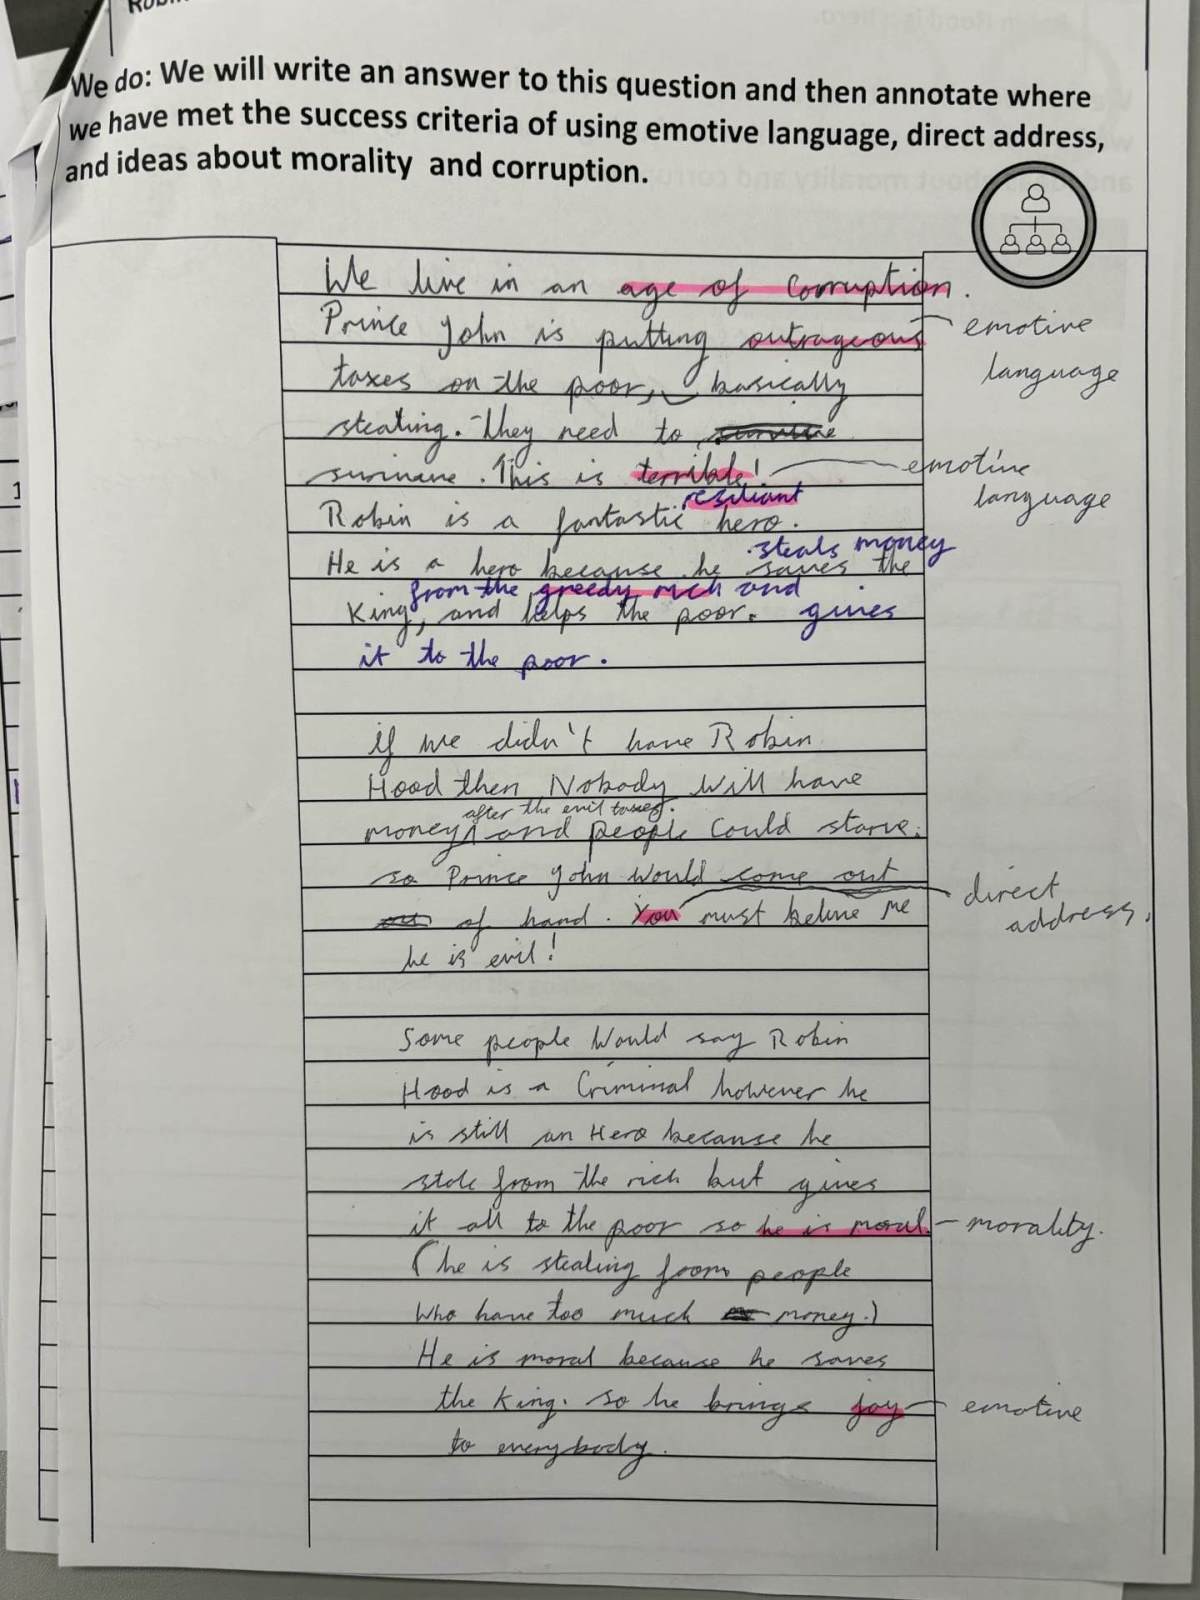 We do: We will write an answer to this question and then annotate where
we have met the success criteria of using emotive language, direct address,
and ideas about morality and corruption.
We live in an age of corruption.
Prince John is putting outrageous
emotive
language
taxes on the poor, basically
stealing. They need to
surivave. This is terrible!
emotive
language
resiliant
Robin is a fantastic hero.
steals money
He is a hero because he saves the
from the greedy rich and
King, and helps the poor. gives
it to the poor.
if we didn't have Robin
Hood then Nobody will have
after the evil taxes.
money and people could starve.
so Prince John would come out
of hand. You must believe me
direct
address.
he is evil!
Some people Would say Robin
Hood is a Criminal however he
is still an Hero because he
stole from the rich but gives
it all to the poor so he is moral.
morality.
(he is stealing from people
Who have too much money.)
He is moral because he saves
the King. so he brings joy
emotive
to everybody.